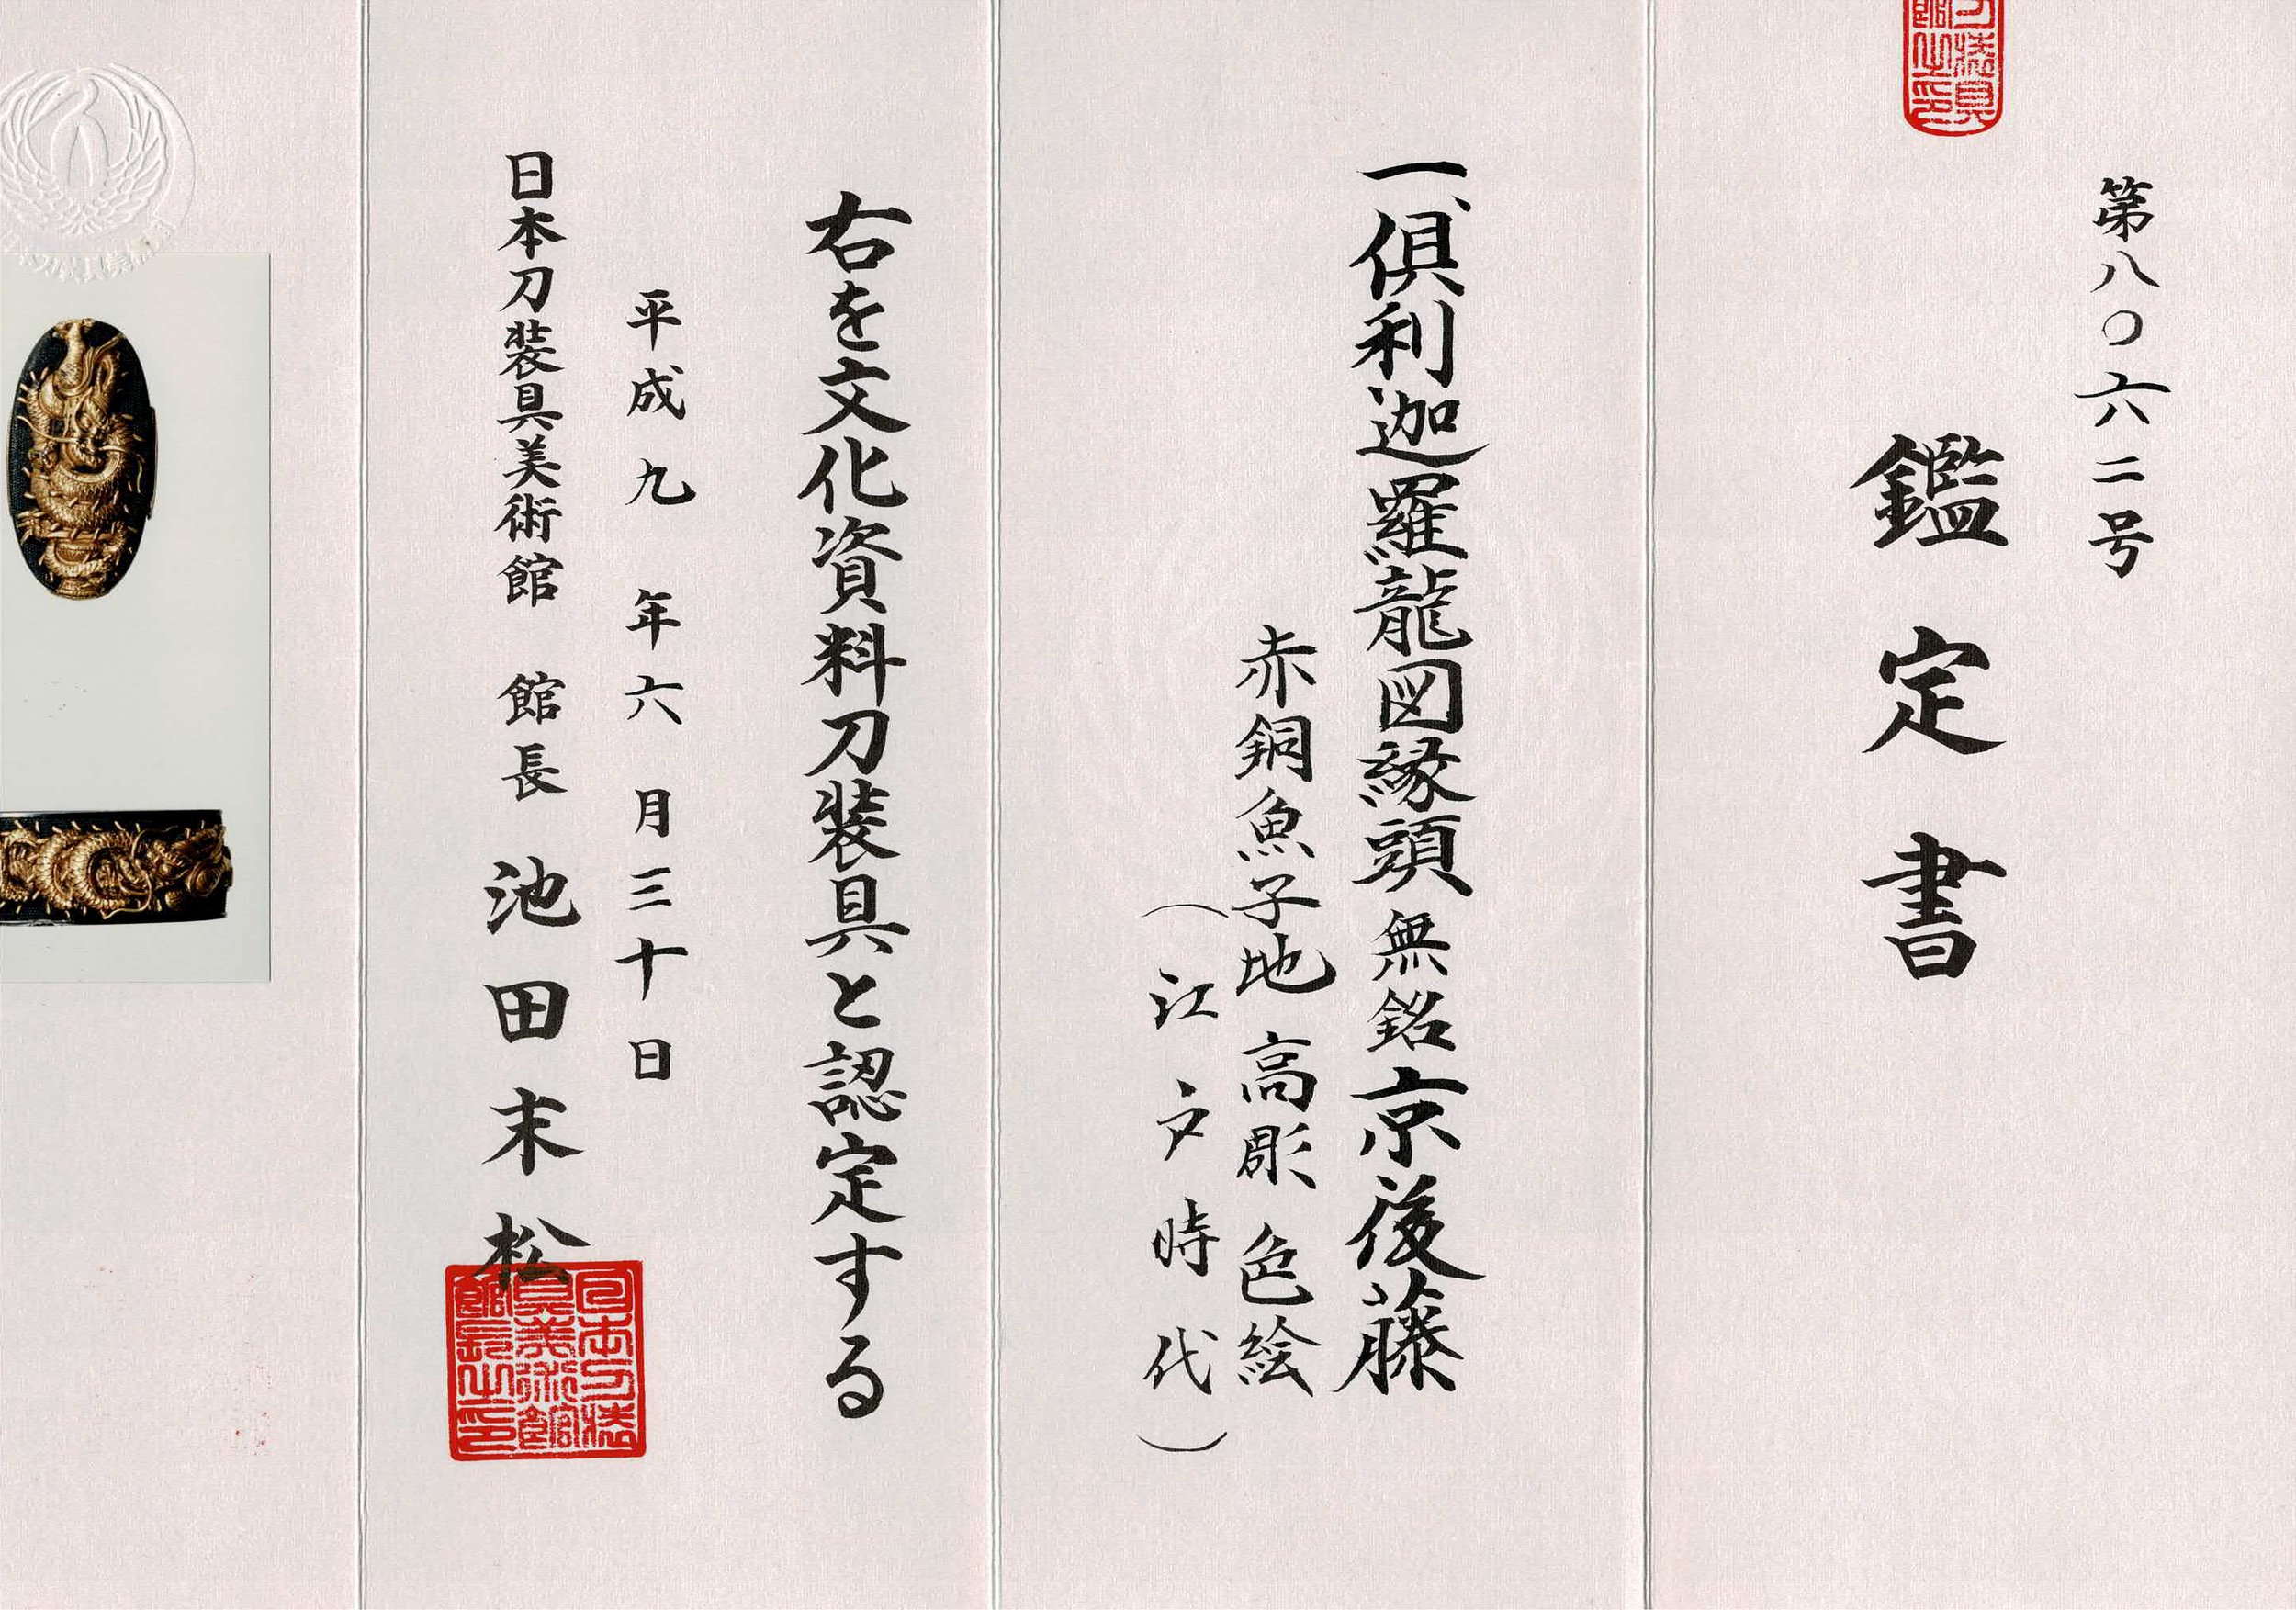 第八〇六二号
鑑定書
一、倶利迦羅龍図縁頭 無銘 京後藤
赤銅魚子地 高彫 色絵
(江戸時代)
右を文化資料刀装具と認定する
平成九年六月三十日
日本刀装具美術館 館長 池田末松
日本刀装
具美術館
館長之印